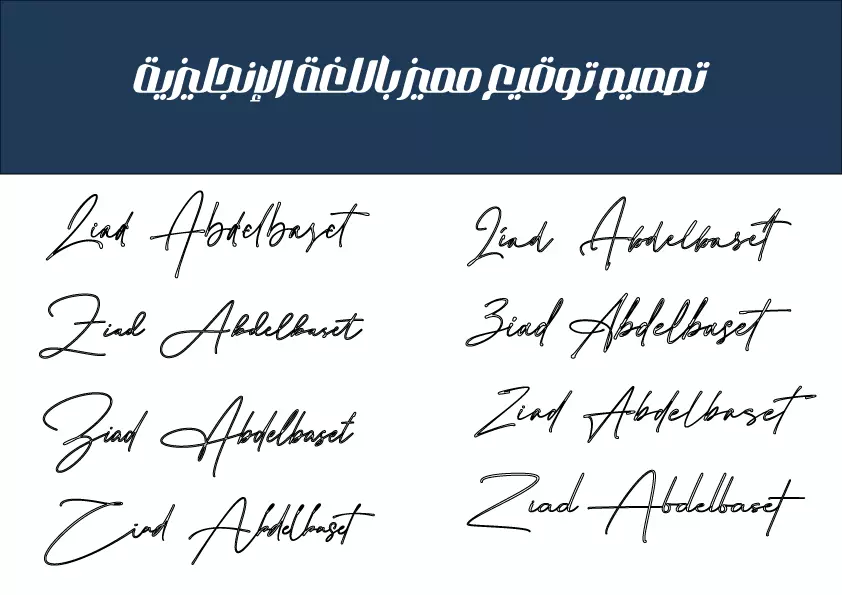 تصميم توقيع مميز باللغة الإنجليزية
Ziad Abdelbaset
Ziad Abdelbaset
Ziad Abdelbaset
Ziad Abdelbaset
Ziad Abdelbaset
Ziad Abdelbaset
Ziad Abdelbaset
Ziad Abdelbaset